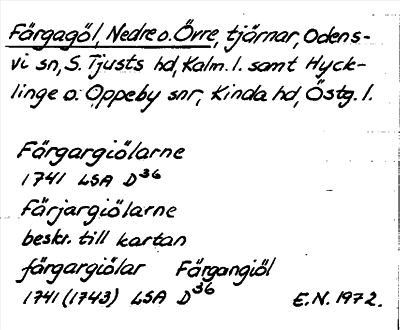 Färgagöl, Nedre o. Övre, tjärnar, Odens-
vi sn, S. Tjusts hd, Kalm. l. samt Hyck-
linge o. Oppeby snr, Kinda hd, Östg. l.
Färgargiölarne
1741 LSA D36
Färjargiölarne
beskr. till kartan
färgargiölar Färgangiöl
1741 (1743) LSA D36 E.N. 1972.